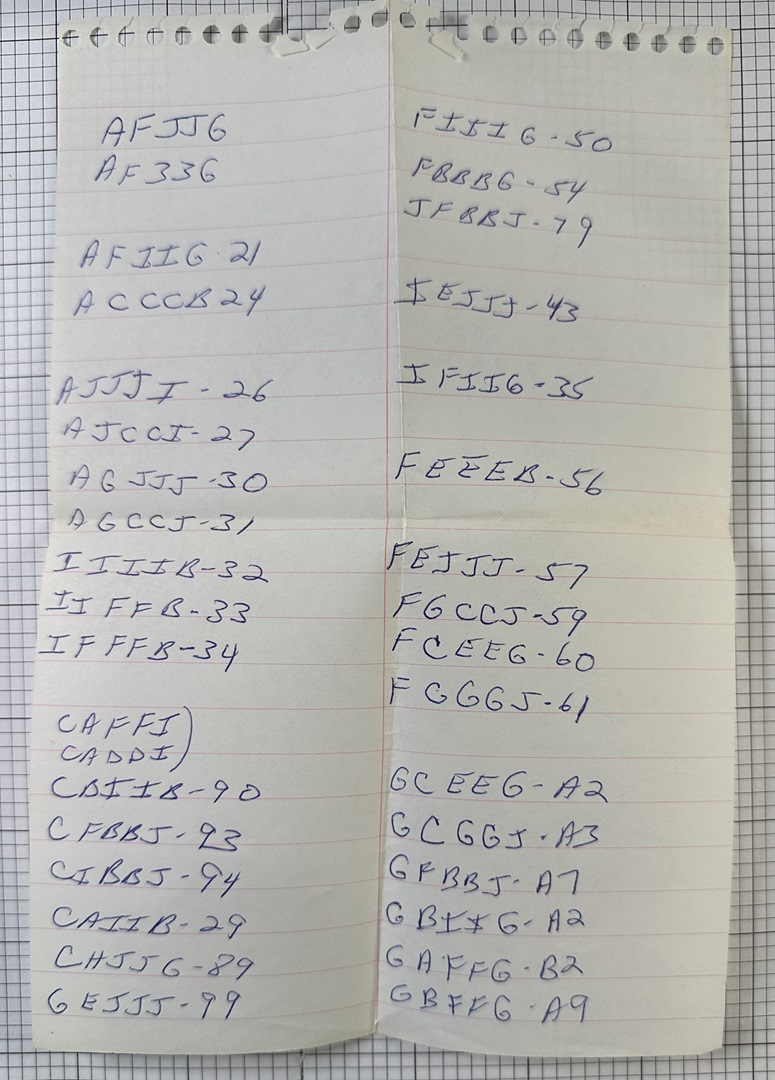 AFJJG
AF33G
AFIIG 21
ACCCB 24
AJJJI - 26
AJCCI - 27
AGJJJ - 30
AGCCJ - 31
IIIIB - 32
IIFFB - 33
IFFFB - 34
CAFFI)
CADDI)
CBIIB - 90
CFBBJ - 93
CIBBJ - 94
CAIIB - 29
CHJJG - 89
GEJJJ - 99
FIIIG - 50
FBBBG - 54
JFBBJ - 79
IEJJJ - 43
IFIIG - 35
FEEEB - 56
FEJJJ - 57
FGCCJ - 59
FCEEG - 60
FGGGJ - 61
GCEEG - A2
GCGGJ - A3
GFBBJ - A7
GBIIG - A2
GAFFG - B2
GBFFG - A9